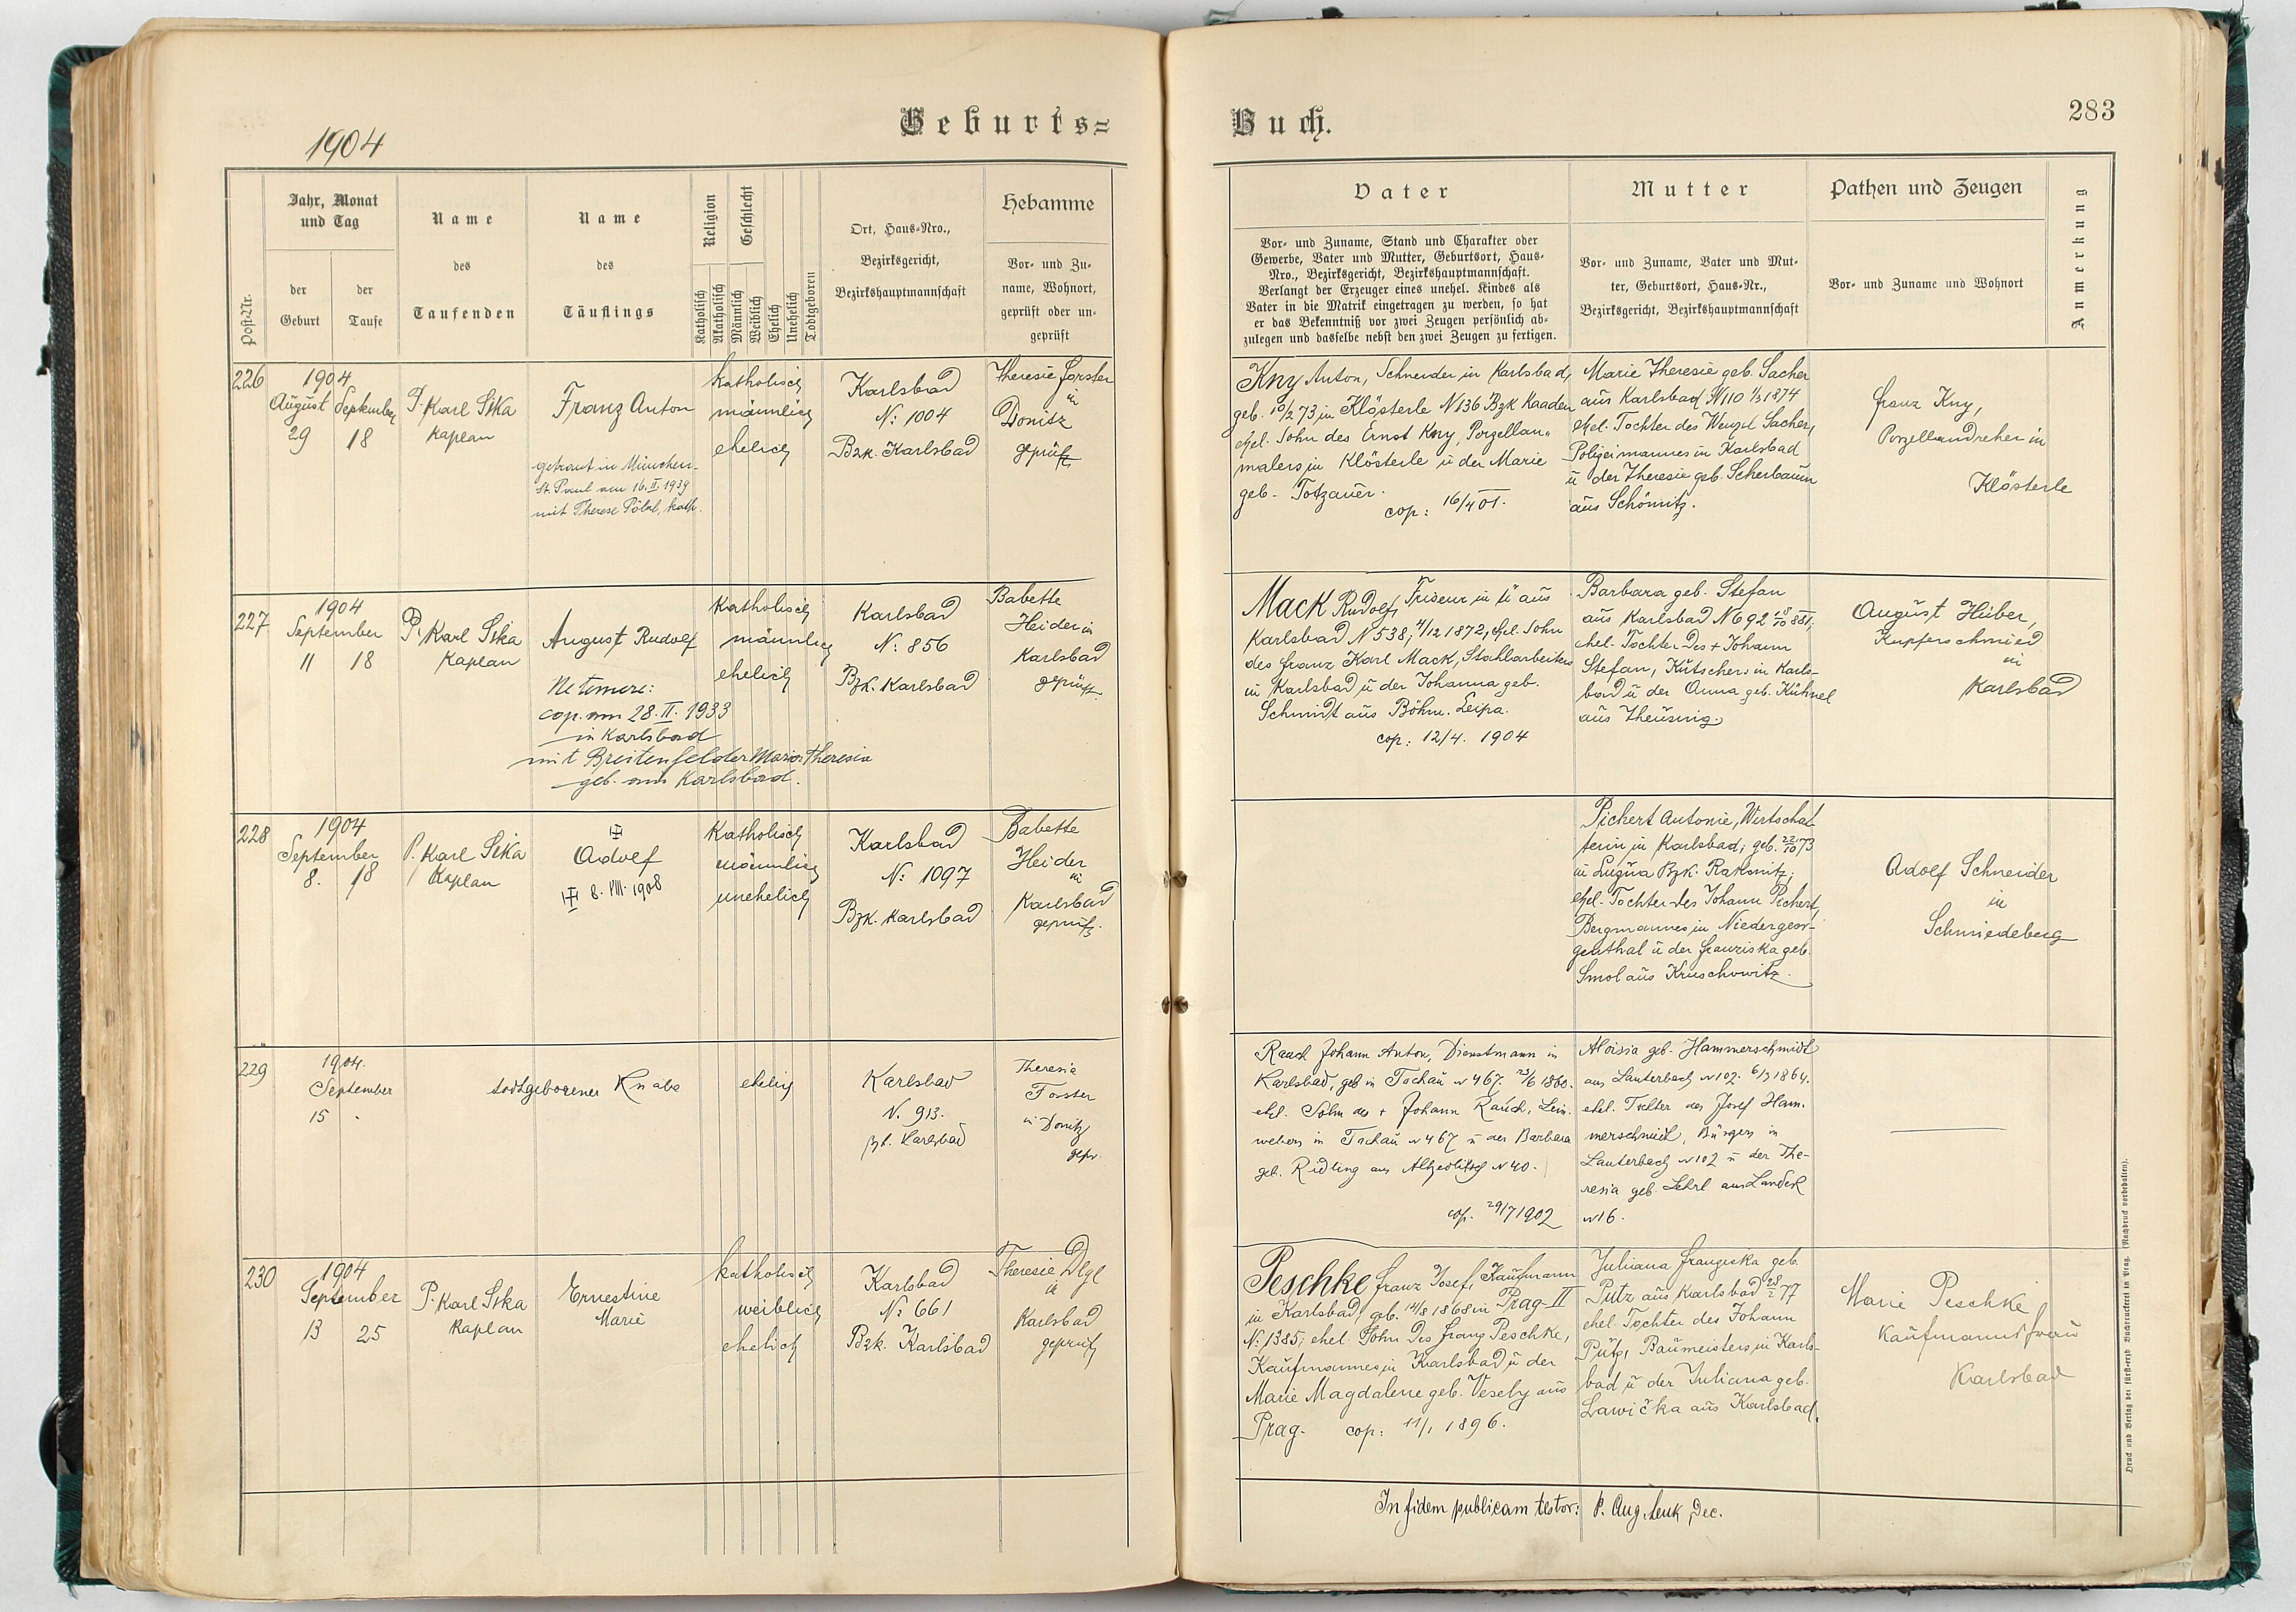 1904
Geburts=
Buch.
283
Post-Nr.
Jahr, Monat
und Tag
der
Geburt
der
Taufe
Name
des
Taufenden
Name
des
Täuflings
Religion
Geschlecht
Katholisch
Akatholisch
Männlich
Weiblich
Ehelich
Unehelich
Todtgeboren
Ort, Haus=Nro.,
Bezirksgericht,
Bezirkshauptmannschaft
Hebamme
Vor= und Zu=
name, Wohnort,
geprüft oder un=
geprüft
Vater
Vor= und Zuname, Stand und Charakter oder
Gewerbe, Vater und Mutter, Geburtsort, Haus=
Nro., Bezirksgericht, Bezirkshauptmannschaft.
Verlangt der Erzeuger eines unehel. Kindes als
Vater in die Matrik eingetragen zu werden, so hat
er das Bekenntniß vor zwei Zeugen persönlich ab=
zulegen und dasselbe nebst den zwei Zeugen zu fertigen.
Mutter
Vor= und Zuname, Vater und Mut=
ter, Geburtsort, Haus=Nr.,
Bezirksgericht, Bezirkshauptmannschaft
Pathen und Zeugen
Vor= und Zuname und Wohnort
Anmerkung
226
1904
August September
29 18
P. Karl Sika
Kaplan
Franz Anton
getraut in München-
St. Paul am 16.II.1939
mit Therese kath.
katholisch
männlich
ehelich
Karlsbad
N: 1004
Bzk. Karlsbad
Theresie Forster
in
Donitz
geprüft
Kny Anton, Schneider in Karlsbad,
geb. 10/2 73 in Klösterle N 136 Bzk Kaaden
ehel. Sohn des Ernst Kny, Porzellan-
malers in Klösterle ü der Marie
geb. Totzauer.
cop: 16/4 01.
Marie Theresie geb. Sacher
aus Karlsbad N 110 1/3 1874
ehel. Tochter des Wenzel Sacher,
Polizeimannes in Karlsbad
ü der Theresie geb. Scherbaum
aus Schömitz.
Franz Kny,
Porzellandreher in
Klösterle
227
1904
September
11 18
P. Karl Sika
Kaplan
August Rudolf
Ne temere:
cop. am 28.II.1933
in Karlsbad
mit Breitenfelder Maria Theresia
geb. aus Karlsbad.
katholisch
männlich
ehelich
Karlsbad
N: 856
Bzk. Karlsbad
Babette
Heider in
Karlsbad
geprüft
Mack Rudolf, Friseur in ü aus
Karlsbad N 538, 4/12 1872, ehel. Sohn
des Franz Karl Mack, Stahlarbeiters
in Karlsbad ü der Johanna geb.
Schmidt aus Böhm. Leipa.
cop: 12/4. 1904
Barbara geb. Stefan
aus Karlsbad N 692 18/10 881,
ehel. Tochter des + Johann
Stefan, Kutschers in Karls-
bad ü der Anna geb. Kühnel
aus Theusing.
August Huber,
Kupferschmied
in
Karlsbad
228
1904
September
8. 18
P. Karl Sika
Kaplan
Adolf
8. VIII. 1908
katholisch
männlich
unehelich
Karlsbad
N: 1097
Bzk. Karlsbad
Babette
Heider
in
Karlsbad
geprüft.
Pichert Antonie, Wirtschaf
terin in Karlsbad, geb. 22/10 73
in Luzna Bzk. Rakonitz,
ehel. Tochter des Johann Pichert,
Bergmannes in Niedergeor-
genthal ü der Franziska geb.
Smol aus Kruschowitz.
Adolf Schneider
in
Schmiedeberg
229
1904.
September
15 -
todtgeborener Knabe
ehelich
Karlsbad
N. 913.
Bzk. Karlsbad
Theresia
Forster
in Donitz
gepr.
Rauch Johann Anton, Dienstmann in
Karlsbad, geb in Tachau N 467. 23/6 1860.
ehel. Sohn des + Johann Rauch, Lein-
webers in Tachau N 467 ü der Barbara
geb. Ridling aus Altzedlitsch N 40.
cop. 29/7 1902
Aloisia geb. Hammerschmidt
aus Lauterbach N 102. 6/3 1864.
ehel. Tochter des Josef Ham-
merschmidt, Bürgers in
Lauterbach N 102 ü der The-
resia geb. Lehrl aus Landek
N 16.
230
1904
September
13 25
P. Karl Sika
Kaplan
Ernestine
Marie
katholisch
weiblich
ehelich
Karlsbad
N: 661
Bzk. Karlsbad
Theresie Dlgl
in
Karlsbad
geprüft
Peschke Franz Josef, Kaufmann
in Karlsbad, geb. 14/8 1868 in Prag-II
N: 1385, ehel. Sohn des Franz Peschke,
Kaufmannes in Karlsbad ü der
Marie Magdalene geb. Vesely aus
Prag. cop: 11/1 1896.
Juliana Franziska geb.
Putz aus Karlsbad 28/2 77
ehel. Tochter des Johann
Putz, Baumeisters in Karls-
bad ü der Juliana geb.
Lawička aus Karlsbad.
Marie Peschke
Kaufmannsfrau
Karlsbad
In fidem publicam testor: P. Aug. Dec.
Druck und Verlag der fürst-erzb. Buchdruckerei in Prag. (Nachdruck vorbehalten).